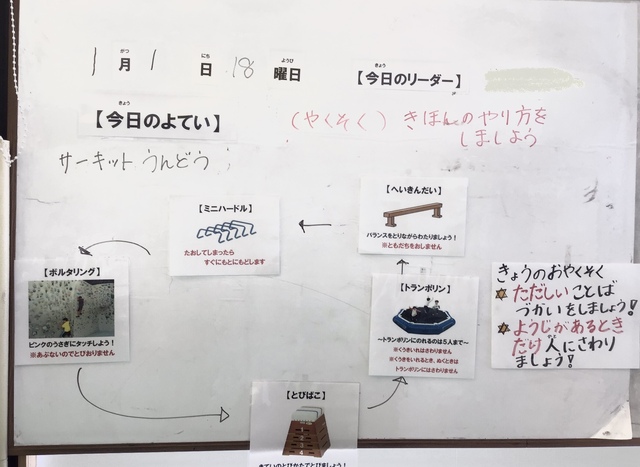 1 月 1 日 18 曜日
がつ にち ようび
【今日のリーダー】
きょう
【今日のよてい】
きょう
(やくそく) きほんのやり方を
しましょう
サーキットうんどう
【ミニハードル】
たおしてしまったら
すぐにもとにもどします
【へいきんだい】
バランスをとりながらわたりましょう！
※ともだちをおしません
【ボルタリング】
ピンクのうさぎにタッチしよう！
※あぶないのでとびおりません
【トランポリン】
～トランポリンにのれるのは5人まで～
※くうきいれはさわりません
※くうきをいれるとき、ぬくときは
トランポリンにはさわりません
きょうのおやくそく
ただしいことば
づかいをしましょう!
ようじがあるとき
だけ人にさわり
ましょう!
【とびばこ】
きていのとびかたでとびましょう！